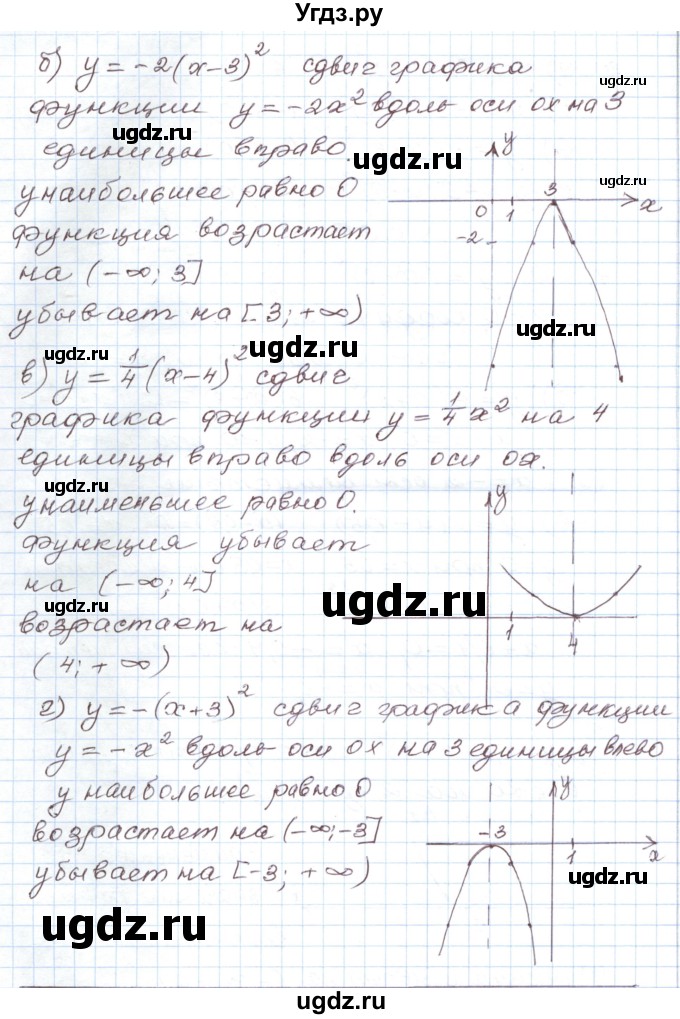 Угдз.ру
б) y = -2(x-3)² сдвиг графика
функции y = -2x² вдоль оси ox на 3
ugdz.ru
единицы вправо.
ugdz.ru
y
ugdz.ru
3
y наибольшее равно 0
0 1 x
ugdz.ru
функция возрастает
-2
на (-∞; 3]
убывает на [3; +∞)
ugdz.ru
ugdz.ru
ugdz.ru
в) y = 1/4 (x-4)² сдвиг
графика функции y = 1/4 x² на 4
единицы вправо вдоль оси ox.
ugdz.ru
y наименьшее равно 0.
y
функция убывает
на (-∞; 4]
ugdz.ru
ugdz.ru
возрастает на
1 4
(4; +∞)
г) y = -(x+3)² сдвиг графика функции
y = -x² вдоль оси ox на 3 единицы влево
y наибольшее равно 0
y
возрастает на (-∞; -3]
-3
1 x
убывает на [-3; +∞)
ugdz.ru
ugdz.ru
ugdz.ru